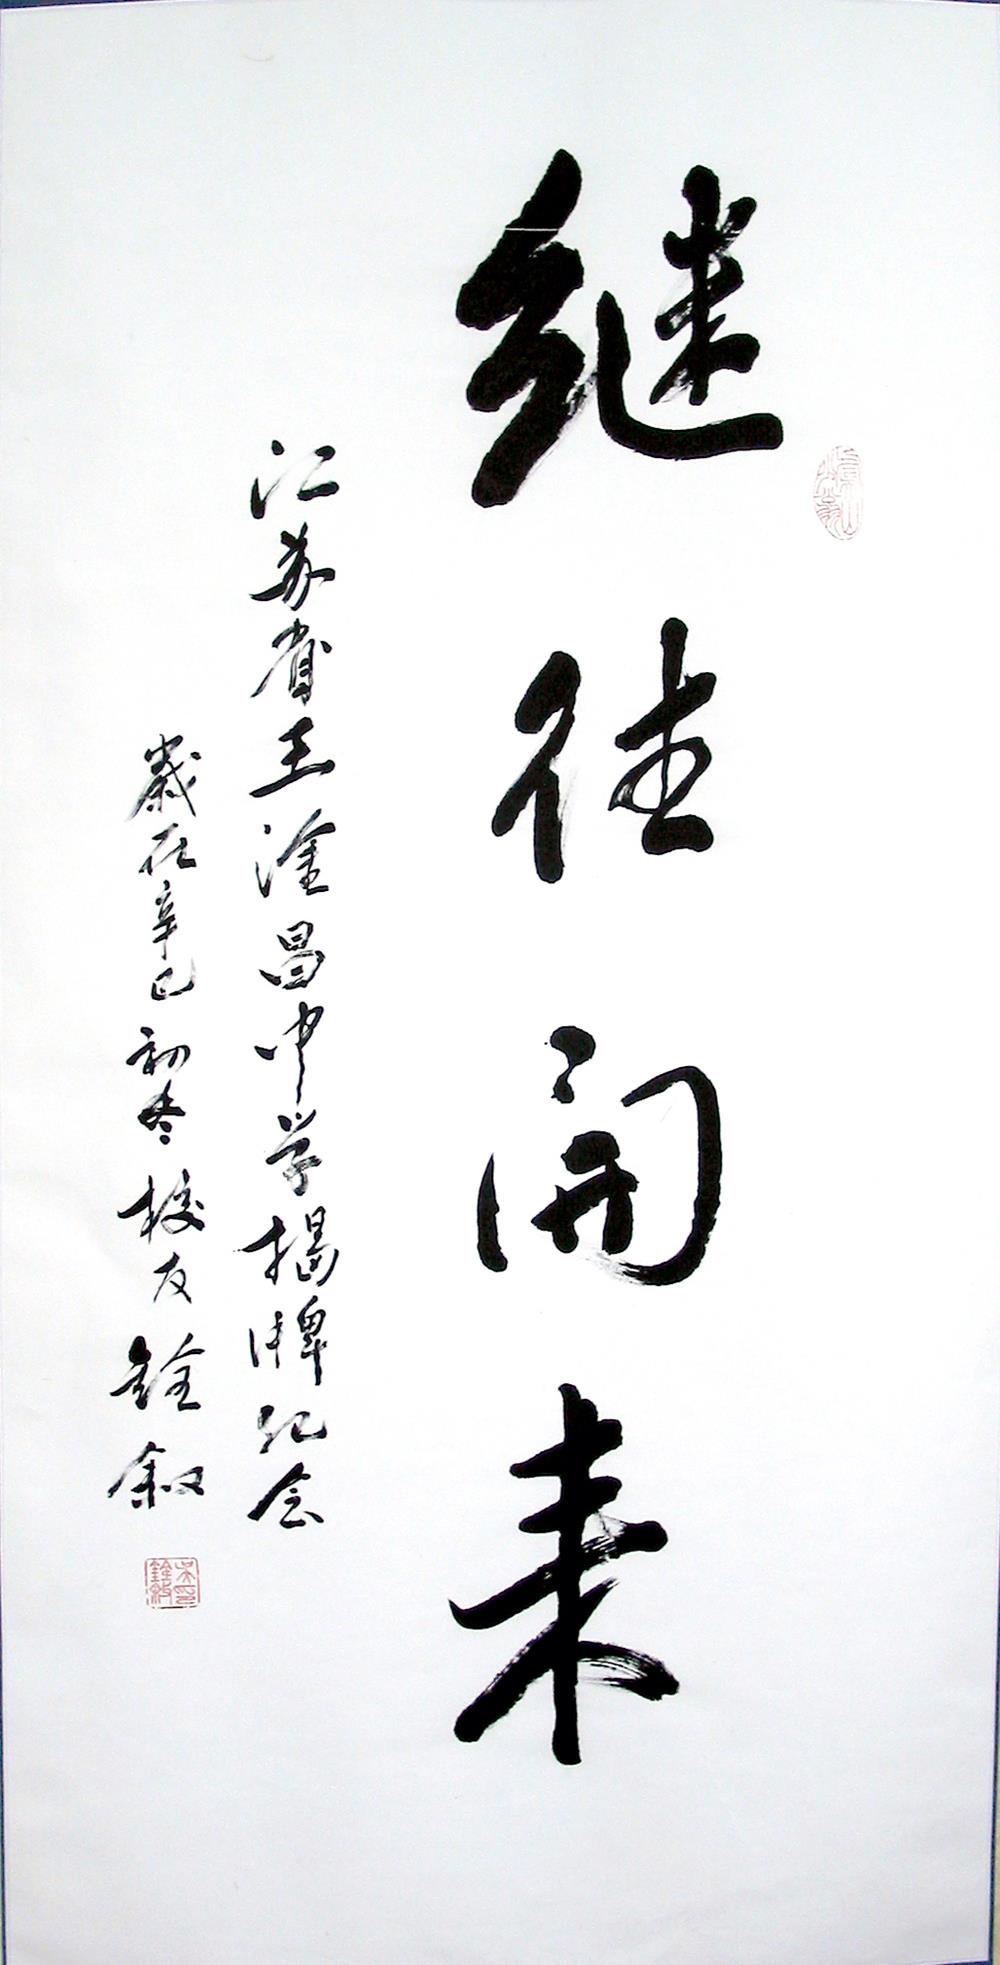 继往开来
江苏省王淦昌中学揭牌纪念
歲在辛巳初冬校友銓叙